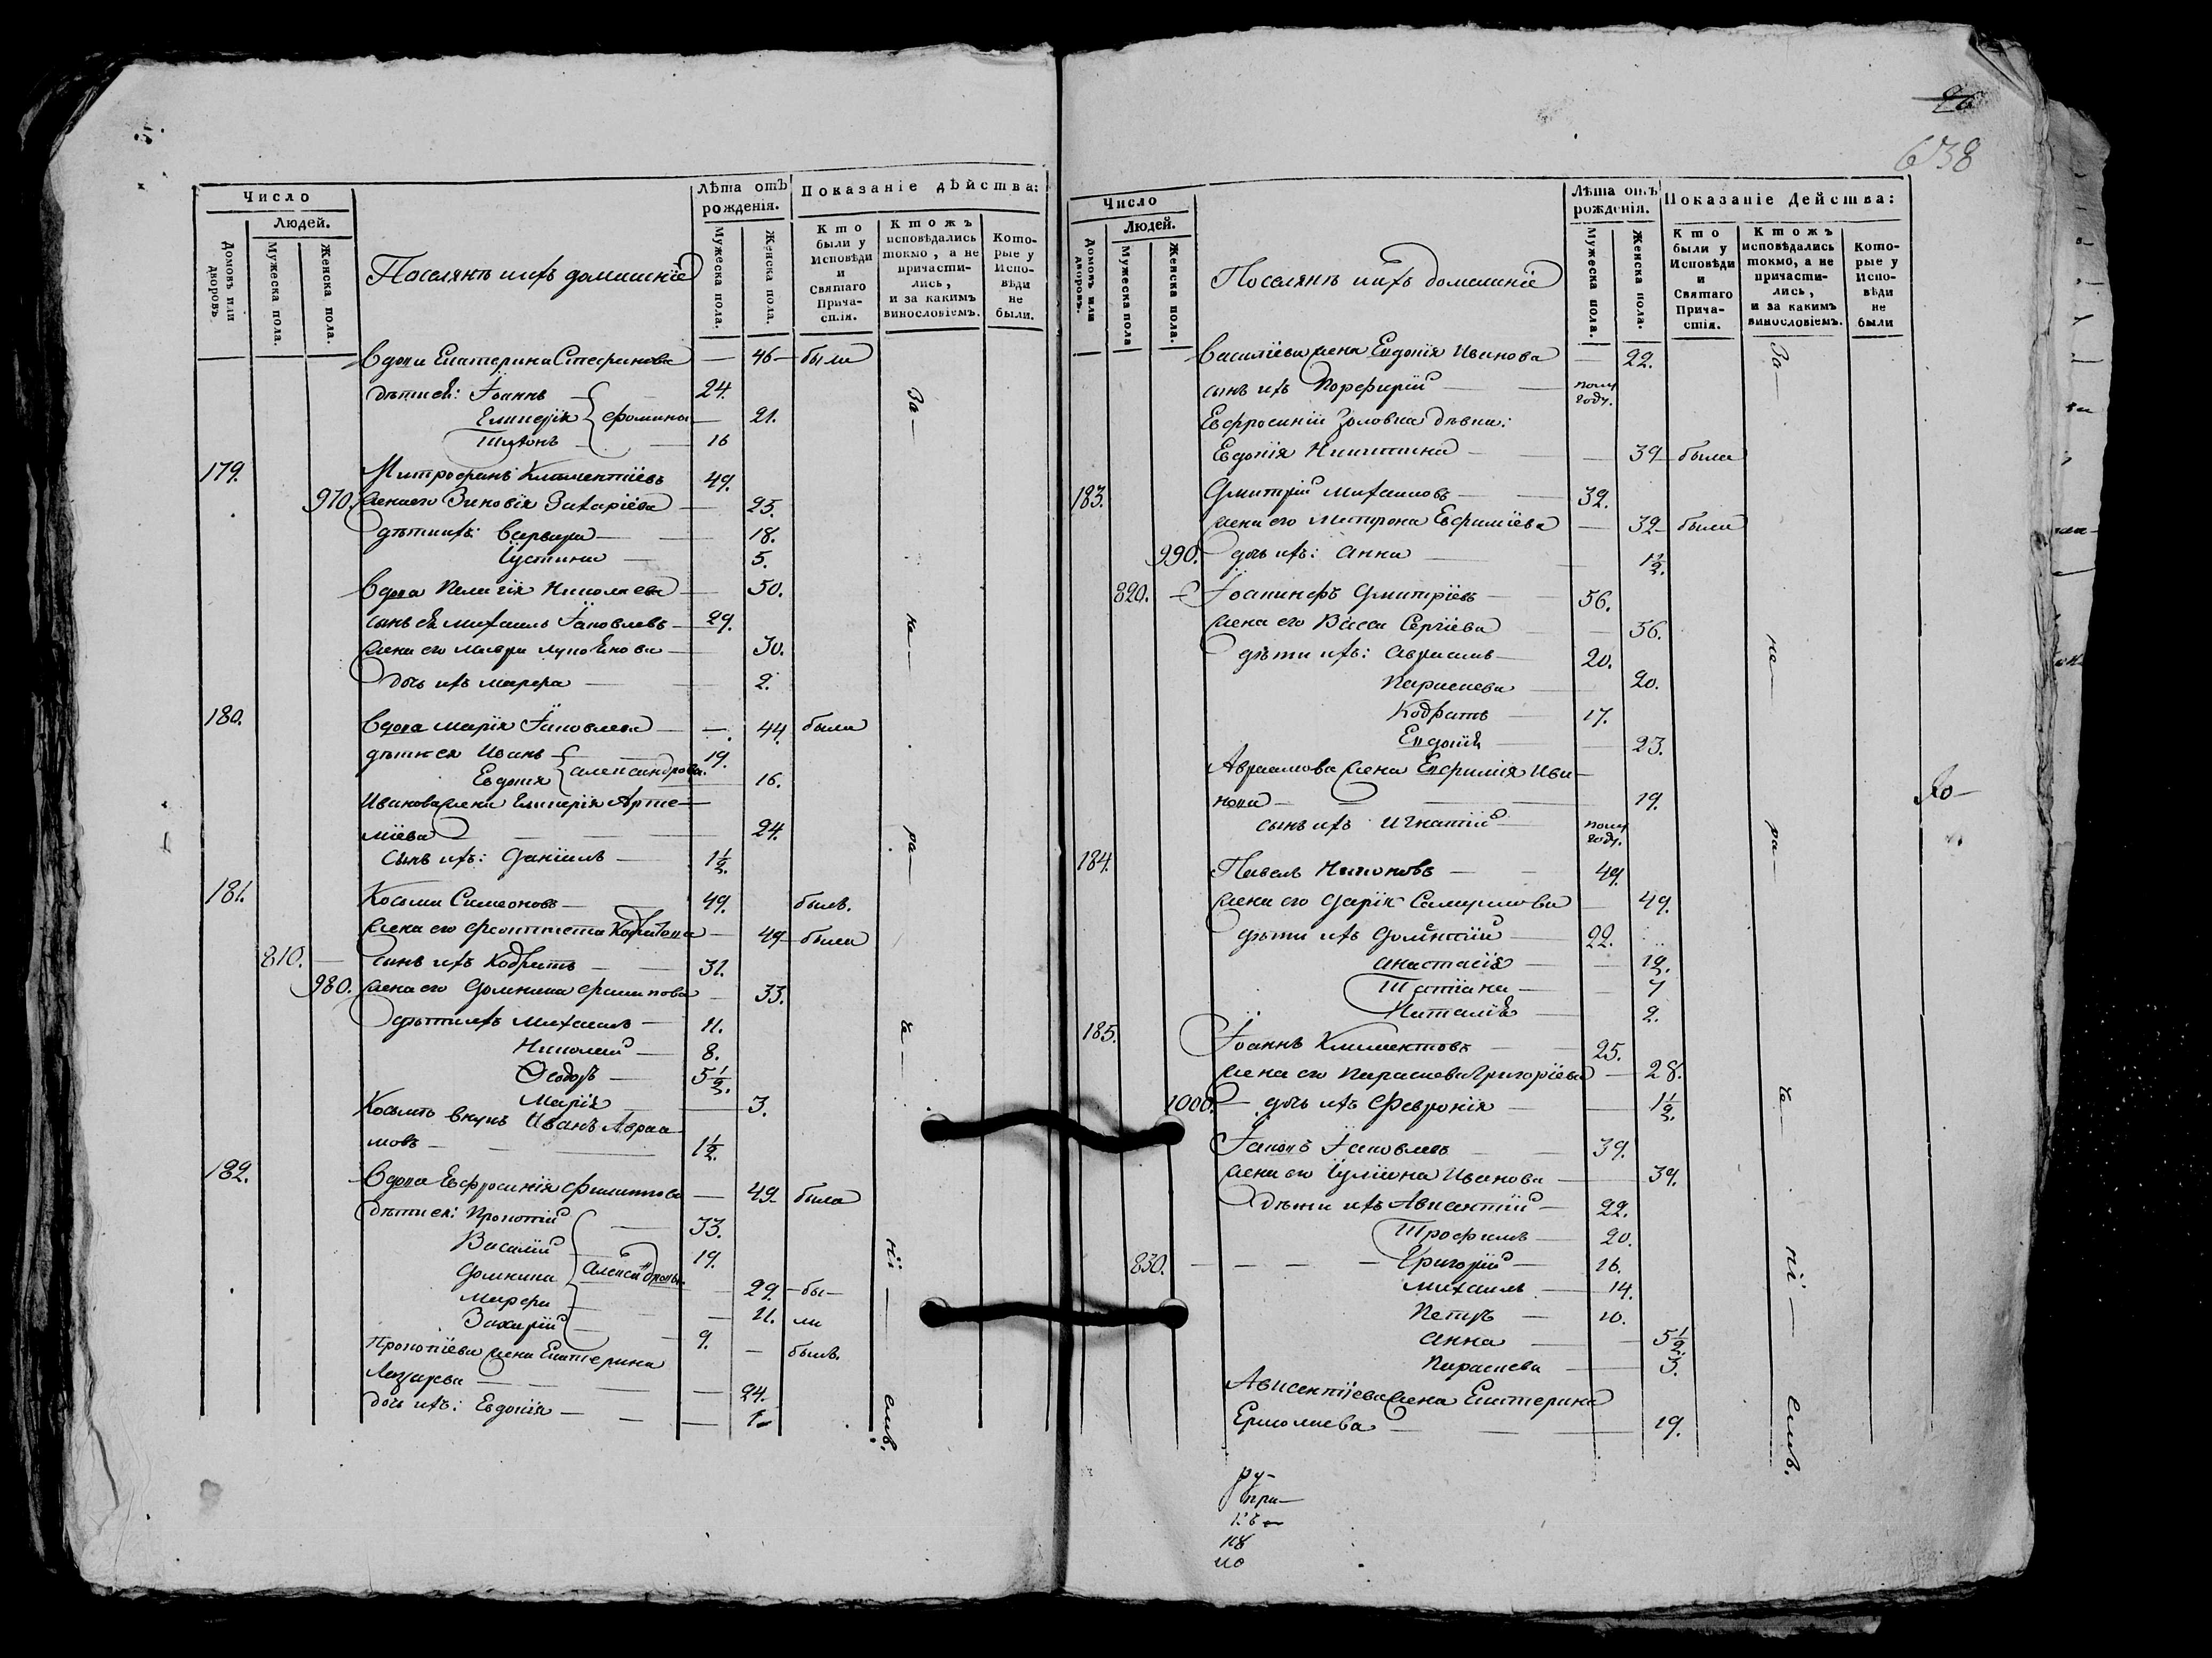 Число
Людей.
Домовъ или дворовъ.
Мужеска пола.
Женска пола.
Лѣта отъ рожденія.
Мужеска пола.
Женска пола.
Показаніе дѣйства:
Кто были у Исповѣди и Святаго Причастія.
Ктожъ исповѣдались токмо, а не причастились, и за какимъ винословіемъ.
Которые у Исповѣди не были.
Поселянъ и ихъ домашніе
Вдова Екатерина Стефанова — 46 — были
дѣти ей: Іоаннъ 24.
Гликерія Фомины 21.
16
179. Митрофанъ Климентіевъ 49.
970. Жена его Зиновія Захаріева — 25.
дѣти ихъ: Варвара — 18.
Іустина — 5.
Вдова Пелагія Николаева — 50.
сынъ ея Михаилъ Іаковлевъ — 29.
Жена его Мавра — 30.
дочь ихъ Марфа — 2.
180. Вдова Марія Іаковлева — 44. была
дѣти ея Иванъ — 19.
Евдокія Александровы — 16.
Иванова жена Гликерія Арте-
міева — 24.
сынъ ихъ: Даніилъ — 1½.
181. Косьма Симеоновъ — 49. былъ.
Жена его Кодратова — 49 — была
810. — сынъ ихъ Кодратъ — 31.
980. Жена его Домникия Филипова — 33.
дѣти ихъ Михаилъ — 11.
Николай — 8.
Ѳеодоръ — 5½.
Марія — 3.
Косьмъ внукъ Иванъ Авраа-
мовъ — 1½.
182. Вдова Евфросинія Филиппова — 49 — была
дѣти ея: Прокопій 33.
Василій 19.
Домникия Александровы 29. — бы —
Марфа — 11. ли
Захарій — 9. — былъ.
Прокопіева жена Екатерина
Лазарева — 24.
дочь ихъ: Евдокія — 1
За — не — ра — че — ні — емъ.
26
638
Число
Людей.
Домовъ или дворовъ.
Мужеска пола
Женска пола.
Лѣта отъ рожденія.
Мужеска пола.
Женска пола.
Показаніе Дейсшва:
Кто были у Исповѣди и Святаго Причастія.
Ктожъ исповѣдались токмо, а не причастились, и за какимъ винословіемъ.
Которые у Исповѣди не были
Поселянъ и ихъ домашніе
Василіева жена Евдокія Иванова — 22.
сынъ ихъ Порфирій — полу году.
Евфросиніи золовка дѣвка:
Евдокія Никитина — 39 — была
183. Дмитрій Михаиловъ — 32.
Жена его Матрона Евфиміева — 32 — были
990. дочь ихъ: Анна — 1½.
820. — Іоаникфъ Дмитріевъ — 56.
Жена его Васса Сергіева — 56.
дѣти ихъ: Авраамъ — 20.
Параскева — 20.
Кодратъ — 17.
Евдокія — 23.
Авраамова жена Евфимія Ива-
нова — 19.
сынъ ихъ Игнатій — полу году.
184. Павелъ Никоновъ — 49.
Жена его Дарія Самуилова — 49.
дѣти ихъ Дометій — 22.
Анастасія — 12.
Татіана — 7
Наталія — 2.
185. Іоаннъ Климентовъ — 25.
Жена его Параскева Григоріева — 28.
1000. — дочь ихъ Февронія — 1½.
Іаковъ Іаковлевъ — 39.
Жена его Іуліана Иванова — 39.
дѣти ихъ Авксентій — 22.
Трофимъ — 20.
830. — Григорій — 16.
Михаилъ — 14.
Петръ — 10.
Анна — 5½.
Параскева — 3.
Авксентіева жена Екатерина
Ермолаева — 19.
За — не — ра — че — ні — емъ.
ру-
при-
къ
но